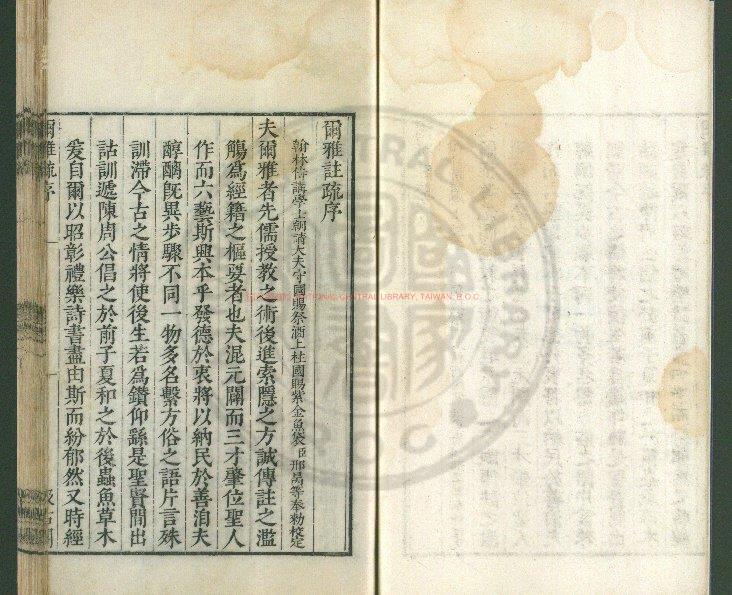 爾雅註疏序
翰林侍講學士朝請大夫守國賜祭酒上柱國賜紫金魚袋臣邢昺等奉勅校定
夫爾雅者先儒授教之術後進索隱之方誠傳註之濫
觴爲經籍之樞要者也夫混元闢而三才肇位聖人
作而六藝斯興本乎發德於衷將以納民於善洎夫
醇醨旣異步驟不同一物多名繫方俗之語片言殊
訓滯今古之情將使後生若爲鑽仰繇是聖賢閒出
詁訓遞陳周公倡之於前子夏和之於後蟲魚草木
爰自爾以昭彰禮樂詩書盡由斯而紛郁然又時經
爾雅疏序
汲古閣
NATIONAL CENTRAL LIBRARY, TAIWAN, R.O.C